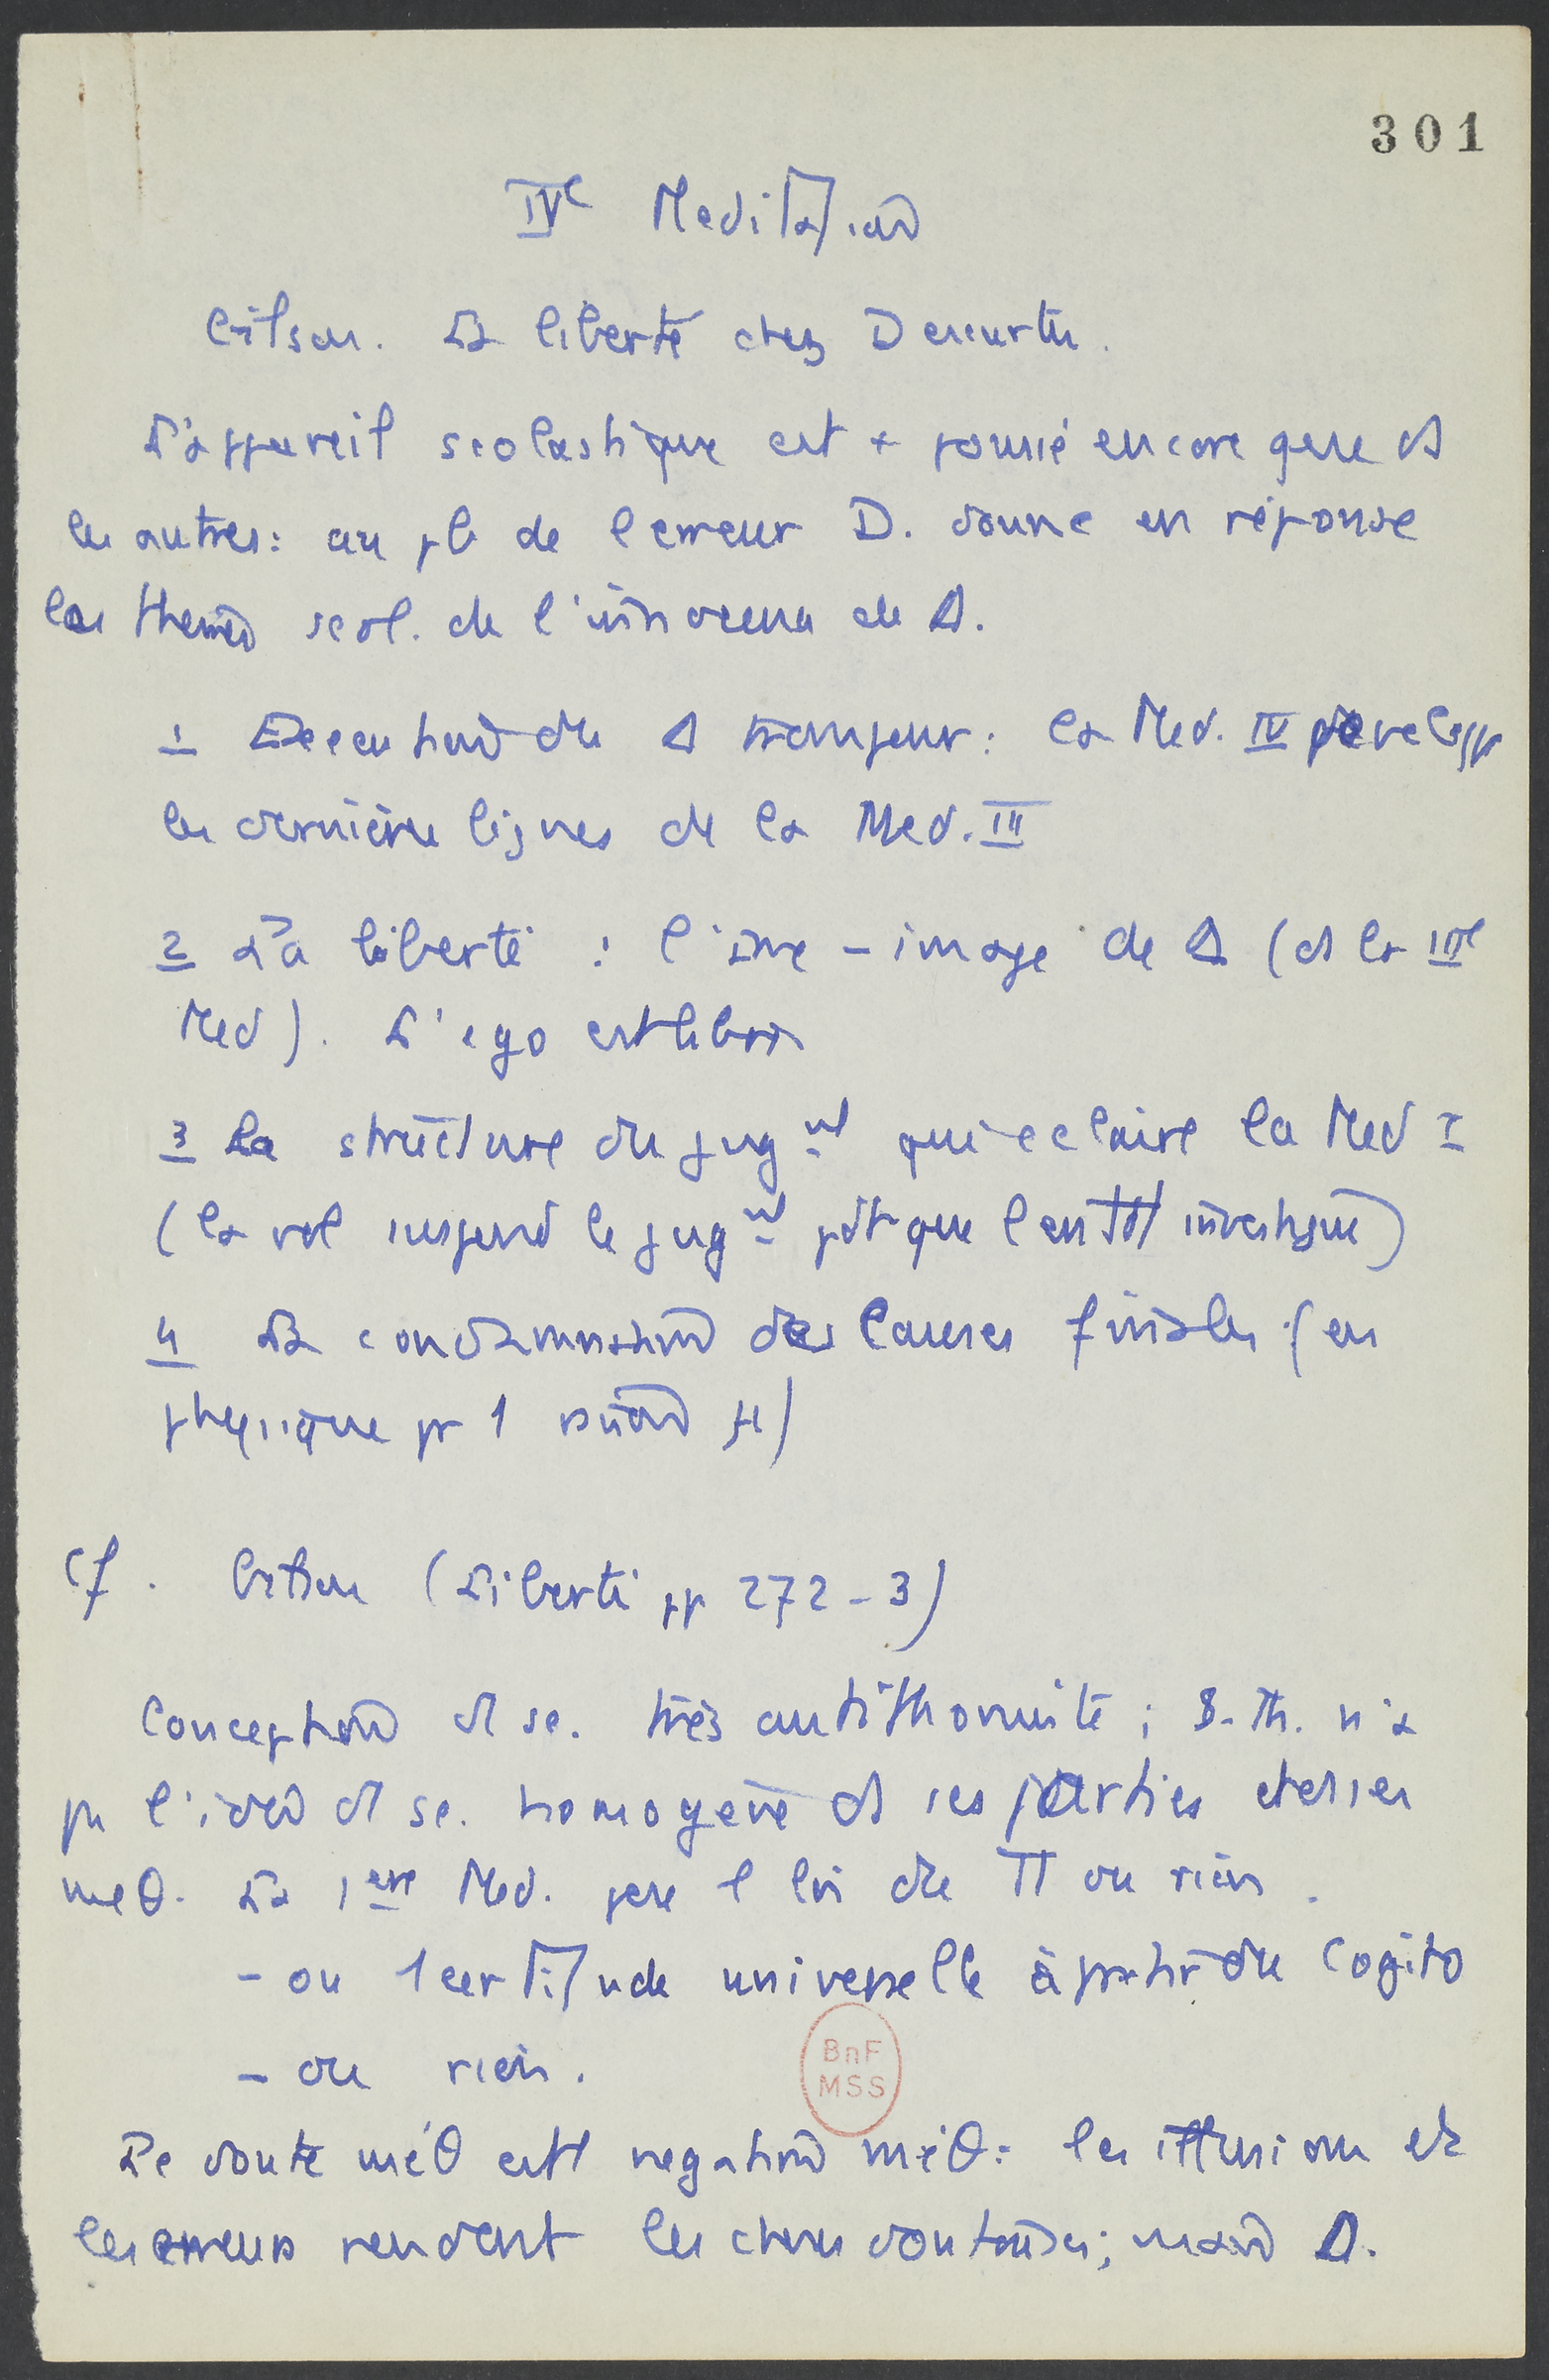 301
IVe Meditation
Gilson. La liberté chez Descartes.
L'appareil scolastique est + poussé encore que ds
les autres : au pb de l'erreur D. donne en réponse
les themes scol. de l'innocence de Δ.
1 Exécution du Δ trompeur : la Med. IV developpe
les dernières lignes de la Med. III
2 La liberté : l'âme - image de Δ (ds la IIIe
Med). L'ego est libre
3 La structure du jugnt qui eclaire la Med I
(la vol suspend le jugnt pdt que l'entdt investigue)
4 La condamnation des Causes finales (en
physique pr 1 raison ψ)
Cf. Gilson (Liberté pp 272-3)
Conception d se. très antithomiste ; S. Th. n'a
pas l'idée d se. homogène ds ses parties et ds ses
méθ. La 1ere Med. pose l loi du TT ou rien.
- ou 1 certitude universelle à partir du Cogito
- ou rien.
BnF
MSS
Le doute méθ est 1 negation méθ : les illusions et
les erreurs rendent les choses douteuses ; mais D.